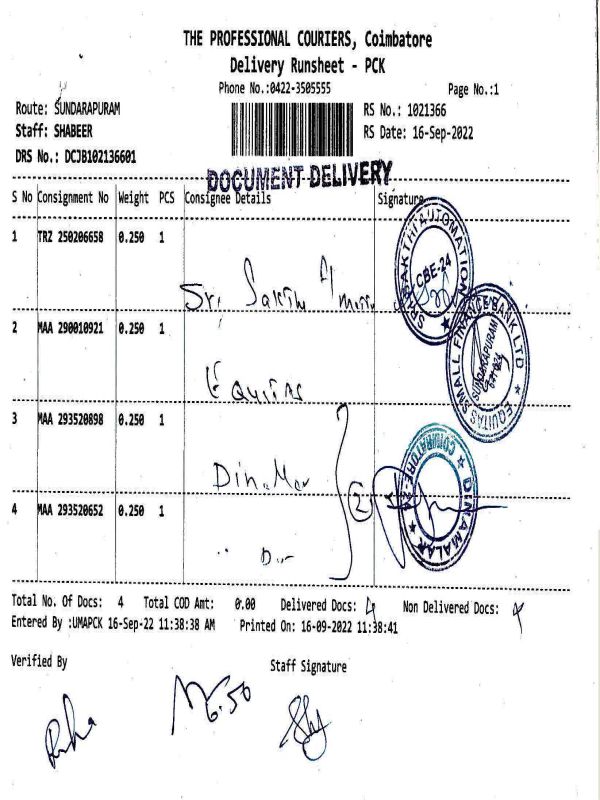 THE PROFESSIONAL COURIERS, Coimbatore
Delivery Runsheet - PCK
Phone No.:0422-3505555 Page No.:1
Route: SUNDARAPURAM RS No.: 1021366
Staff: SHABEER RS Date: 16-Sep-2022
DRS No.: DCJB102136601
DOCUMENT DELIVERY
S No Consignment No Weight PCS Consignee Details Signature
1 TRZ 250206658 0.250 1
Sri Sakthi
SRI SAKTHI AUTOMATION
CBE-24
2 MAA 290010921 0.250 1
Equitas
EQUITAS SMALL FINANCE BANK LTD
SUNDARAPURAM
3 MAA 293520898 0.250 1
2
DINAMALAR
COIMBATORE-24
4 MAA 293520652 0.250 1
Total No. Of Docs: 4 Total COD Amt: 0.00 Delivered Docs: 4 Non Delivered Docs:
Entered By :UMAPCK 16-Sep-22 11:38:38 AM Printed On: 16-09-2022 11:38:41
Verified By Staff Signature